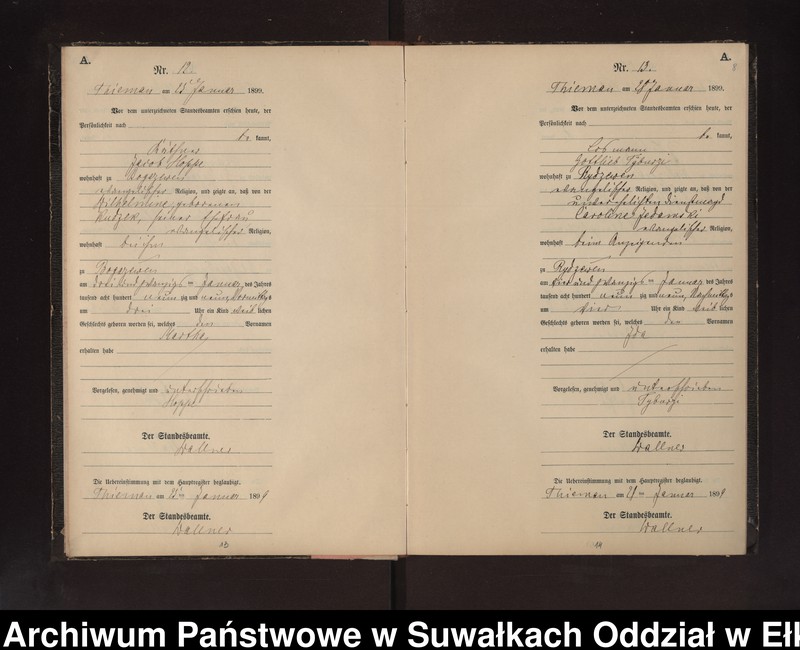 A.
Nr. 12.
Thieman am 25 Januar 1899.
Vor dem unterzeichneten Standesbeamten erschien heute, der
Persönlichkeit nach
be kannt,
Käthner
Jacob Hoppe
wohnhaft zu Rogczewen
evangelischer Religion, und zeigte an, daß von der
Wilhelmine geborenen
Kudzek, seiner Ehefrau
evangelischer Religion,
wohnhaft bei ihm
zu Rogczewen
am drei und zwanzigsten Januar des Jahres
tausend acht hundert neun zig und neun
um drei Uhr ein Kind weib lichen
Geschlechts geboren worden sei, welches den Vornamen
Martha
erhalten habe
Vorgelesen, genehmigt und unterschrieben
Hoppe
Der Standesbeamte.
Wallner
Die Uebereinstimmung mit dem Hauptregister beglaubigt.
Thieman am 25 ten Januar 1899
Der Standesbeamte.
Wallner
13
A.
Nr. 13.
Thieman am Januar 1899.
Vor dem unterzeichneten Standesbeamten erschien heute, der
Persönlichkeit nach
be kannt,
Losmann
Gottlieb Tyburzi
wohnhaft zu Rydzewen
evangelischer Religion, und zeigte an, daß von der
unverehelichten Dienstmagd
Caroline Jedamski
evangelischer Religion,
wohnhaft beim Anzeigenden
zu Rydzewen
am vier und zwanzigsten Januar des Jahres
tausend acht hundert neun zig und neun, Nachmittags
um vier Uhr ein Kind weib lichen
Geschlechts geboren worden sei, welches den Vornamen
Ida
erhalten habe
Vorgelesen, genehmigt und unterschrieben
Tyburzi
Der Standesbeamte.
Wallner
Die Uebereinstimmung mit dem Hauptregister beglaubigt.
Thieman am ten Januar 1899
Der Standesbeamte.
Wallner
14
Archiwum Państwowe w Suwałkach Oddział w Ełk